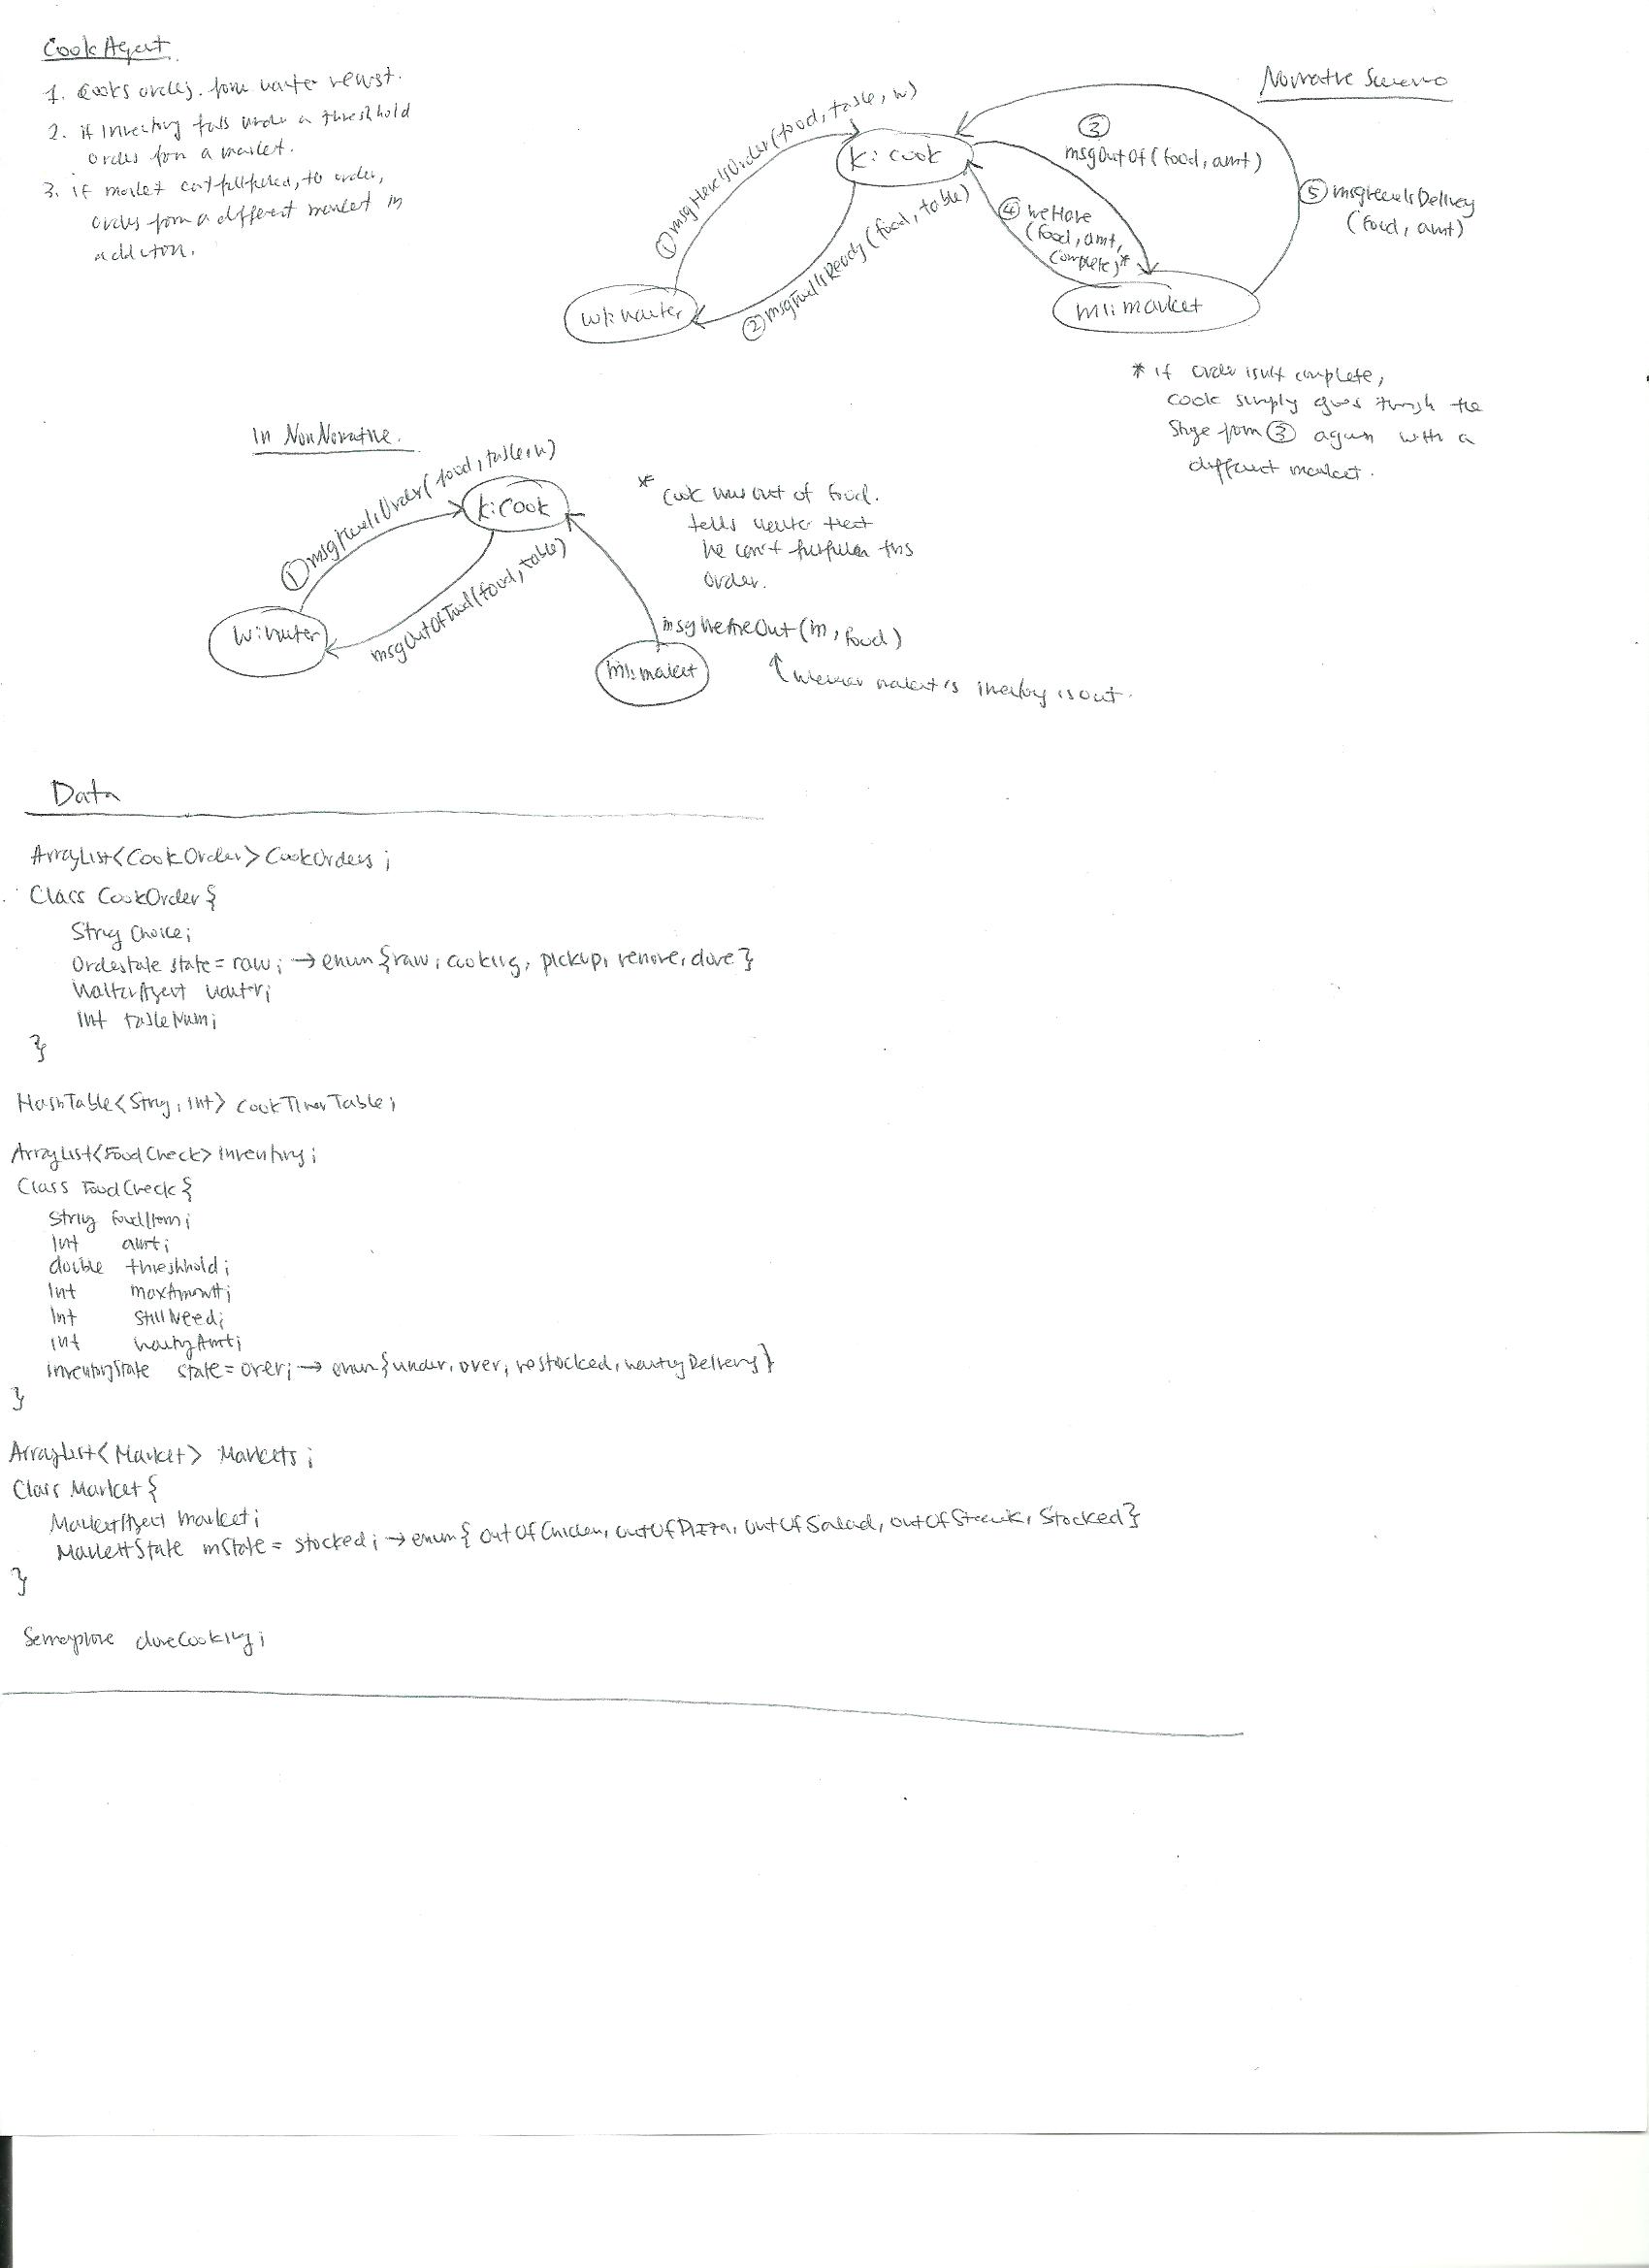 CookAgent
1. Cooks orders. from waiter request.
2. if inventory falls under a threshold
orders from a market.
3. if market can't fulfill, to order,
orders from a different market in
addition.
Normative Scenario
① msgHereIsOrder(food, table, w)
k: cook
③
msgOutOf(food, amt)
② msgFoodIsReady(food, table)
④ weHave
(food, amt,
complete)*
⑤ msgHereIsDelivery
(food, amt)
w1: waiter
m1: market
* if order isn't complete,
cook simply goes through the
stage from ③ again with a
different market.
In NonNormative.
① msgHereIsOrder(food, table, w)
k: cook
msgOutOfFood(food, table)
w: waiter
* cook was out of food.
tells waiter that
he can't fulfill this
order.
msgWeAreOut(m, food)
m1: market
↑ whenever market's inventory is out.
Data
ArrayList<CookOrder> CookOrders;
Class CookOrder {
String Choice;
OrderState state = raw; → enum {raw, cooking, pickup, remove, done}
WaiterAgent waiter;
int tableNum;
}
HashTable<String, int> cookTimerTable;
ArrayList<FoodCheck> Inventory;
Class FoodCheck {
String foodItem;
int amt;
double threshhold;
int maxAmount;
int stillNeed;
int waitingAmt;
InventoryState state = over; → enum {under, over, restocked, waitingDelivery}
}
ArrayList<Market> Markets;
Class Market {
MarketAgent market;
MarketState mState = stocked; → enum {outOfChicken, outOfPizza, outOfSalad, outOfSteak, Stocked}
}
Semaphore doneCooking;